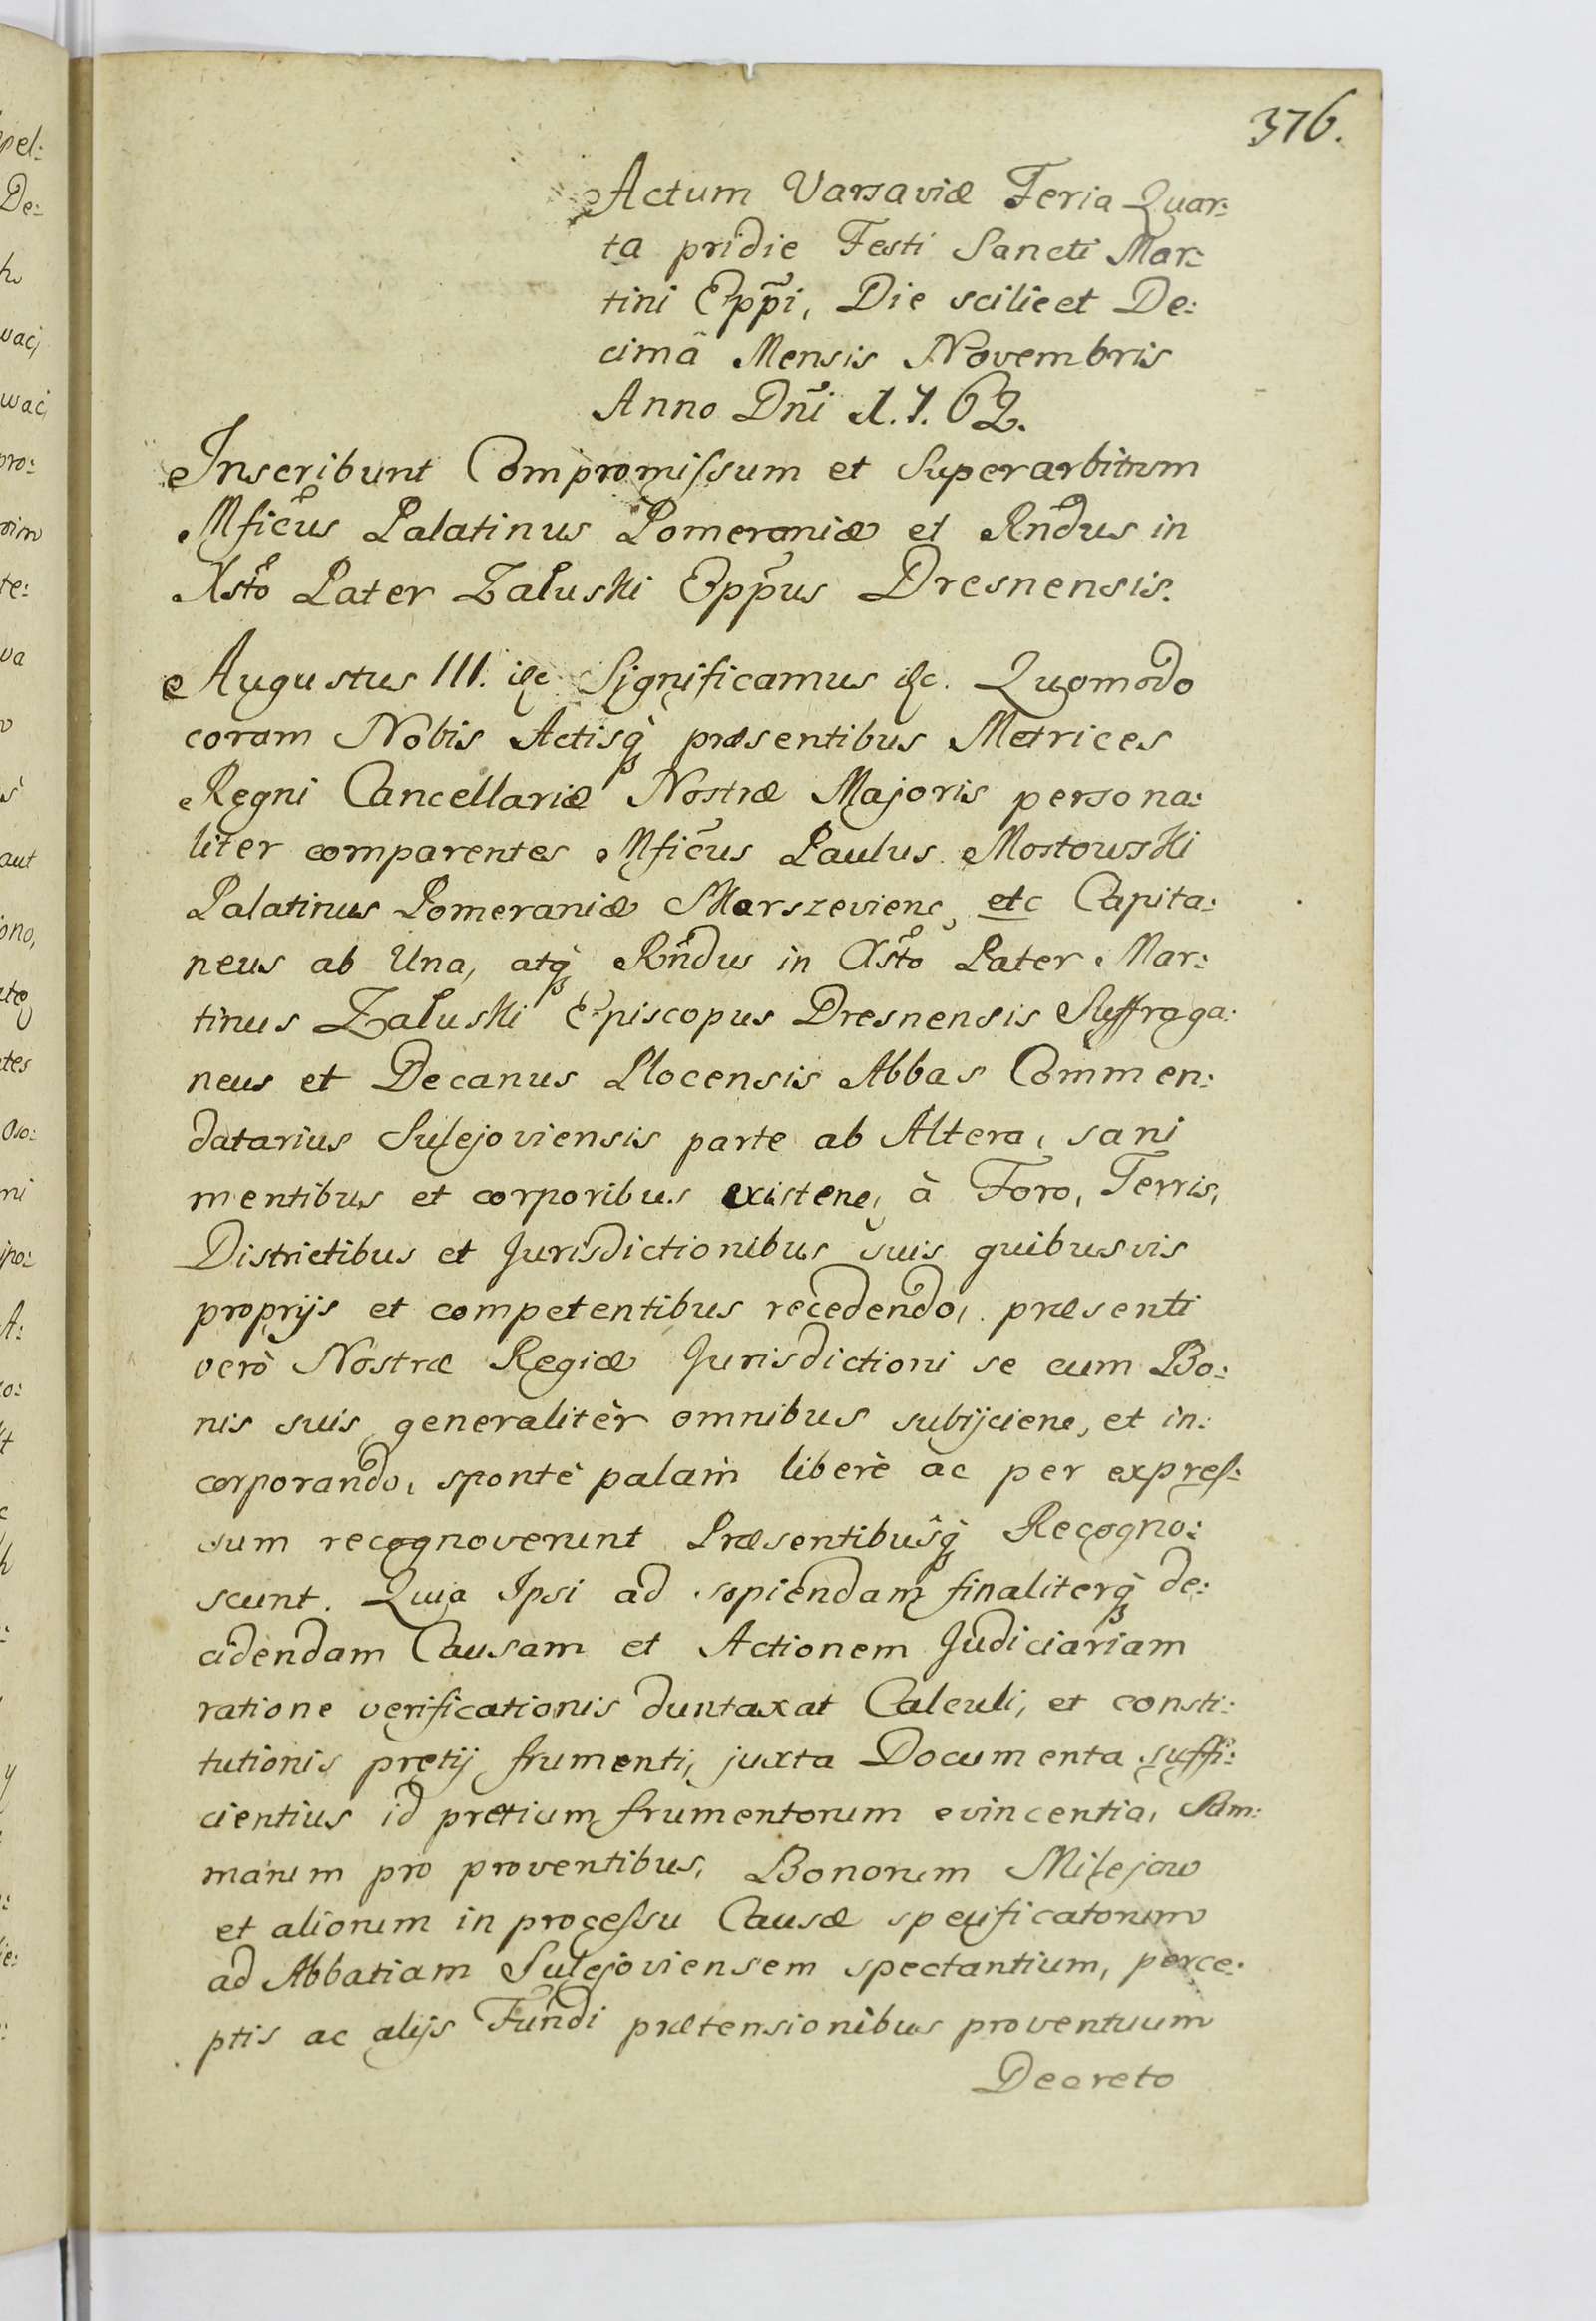 376.
Actum Varsaviæ Feria Quar:
ta pridie Festi Sancti Mar:
tini Epp̃i, Die scilicet De:
cimâ Mensis Novembris
Anno Dñi 1.7.62.
Inscribunt Compromiſsum et Superarbitrum
Mficus Palatinus Pomeraniæ et Rndus in
Xsto Pater Załuski Eppus Dresnensis.
Augustus III. &c Significamus &c. Quomodo
coram Nobis Actisq̀ præsentibus Metrices
Regni Cancellariæ Nostræ Majoris persona:
liter comparentes Mficus Paulus Mostowski
Palatinus Pomeraniæ Skarszevienc, etc Capita:
neus ab Una, atq̀ Rndus in Xsto Pater Mar:
tinus Załuski Episcopus Dresnensis Suffraga:
neus et Decanus Plocensis Abbas Commen:
datarius Sulejoviensis parte ab Altera, sani
mentibus et corporibus existene, à Foro, Terris,
Districtibus et Jurisdictionibus suis quibusvis
proprijs et competentibus recedendo, præsenti
verò Nostræ Regiæ Jurisdictioni se cum Bo:
nis suis generalitèr omnibus subijciene, et in:
corporando, spontè palam liberè ac per expreſ:
sum recognoverunt Præsentibusq̀ Recogno:
scunt. Quia Ipsi ad sopiendam finaliterq̀ de:
cidendam Causam et Actionem Judiciariam
ratione verificationis duntaxat Calculi, et consti:
tutionis pretij frumenti, juxta Documenta suffi:
cientius id pretium frumentorum evincentia, Sum:
marum pro proventibus, Bonorum Milejow
et aliorum in proceſsu Causæ specificatorum
ad Abbatiam Sulejoviensem spectantium, perce:
ptis ac alijs Fundi prætensionibus proventuum
Decreto
pel:
De:
waci
pro:
te:
va
aut
iono,
tes
oso:
ni
ipo:
A: